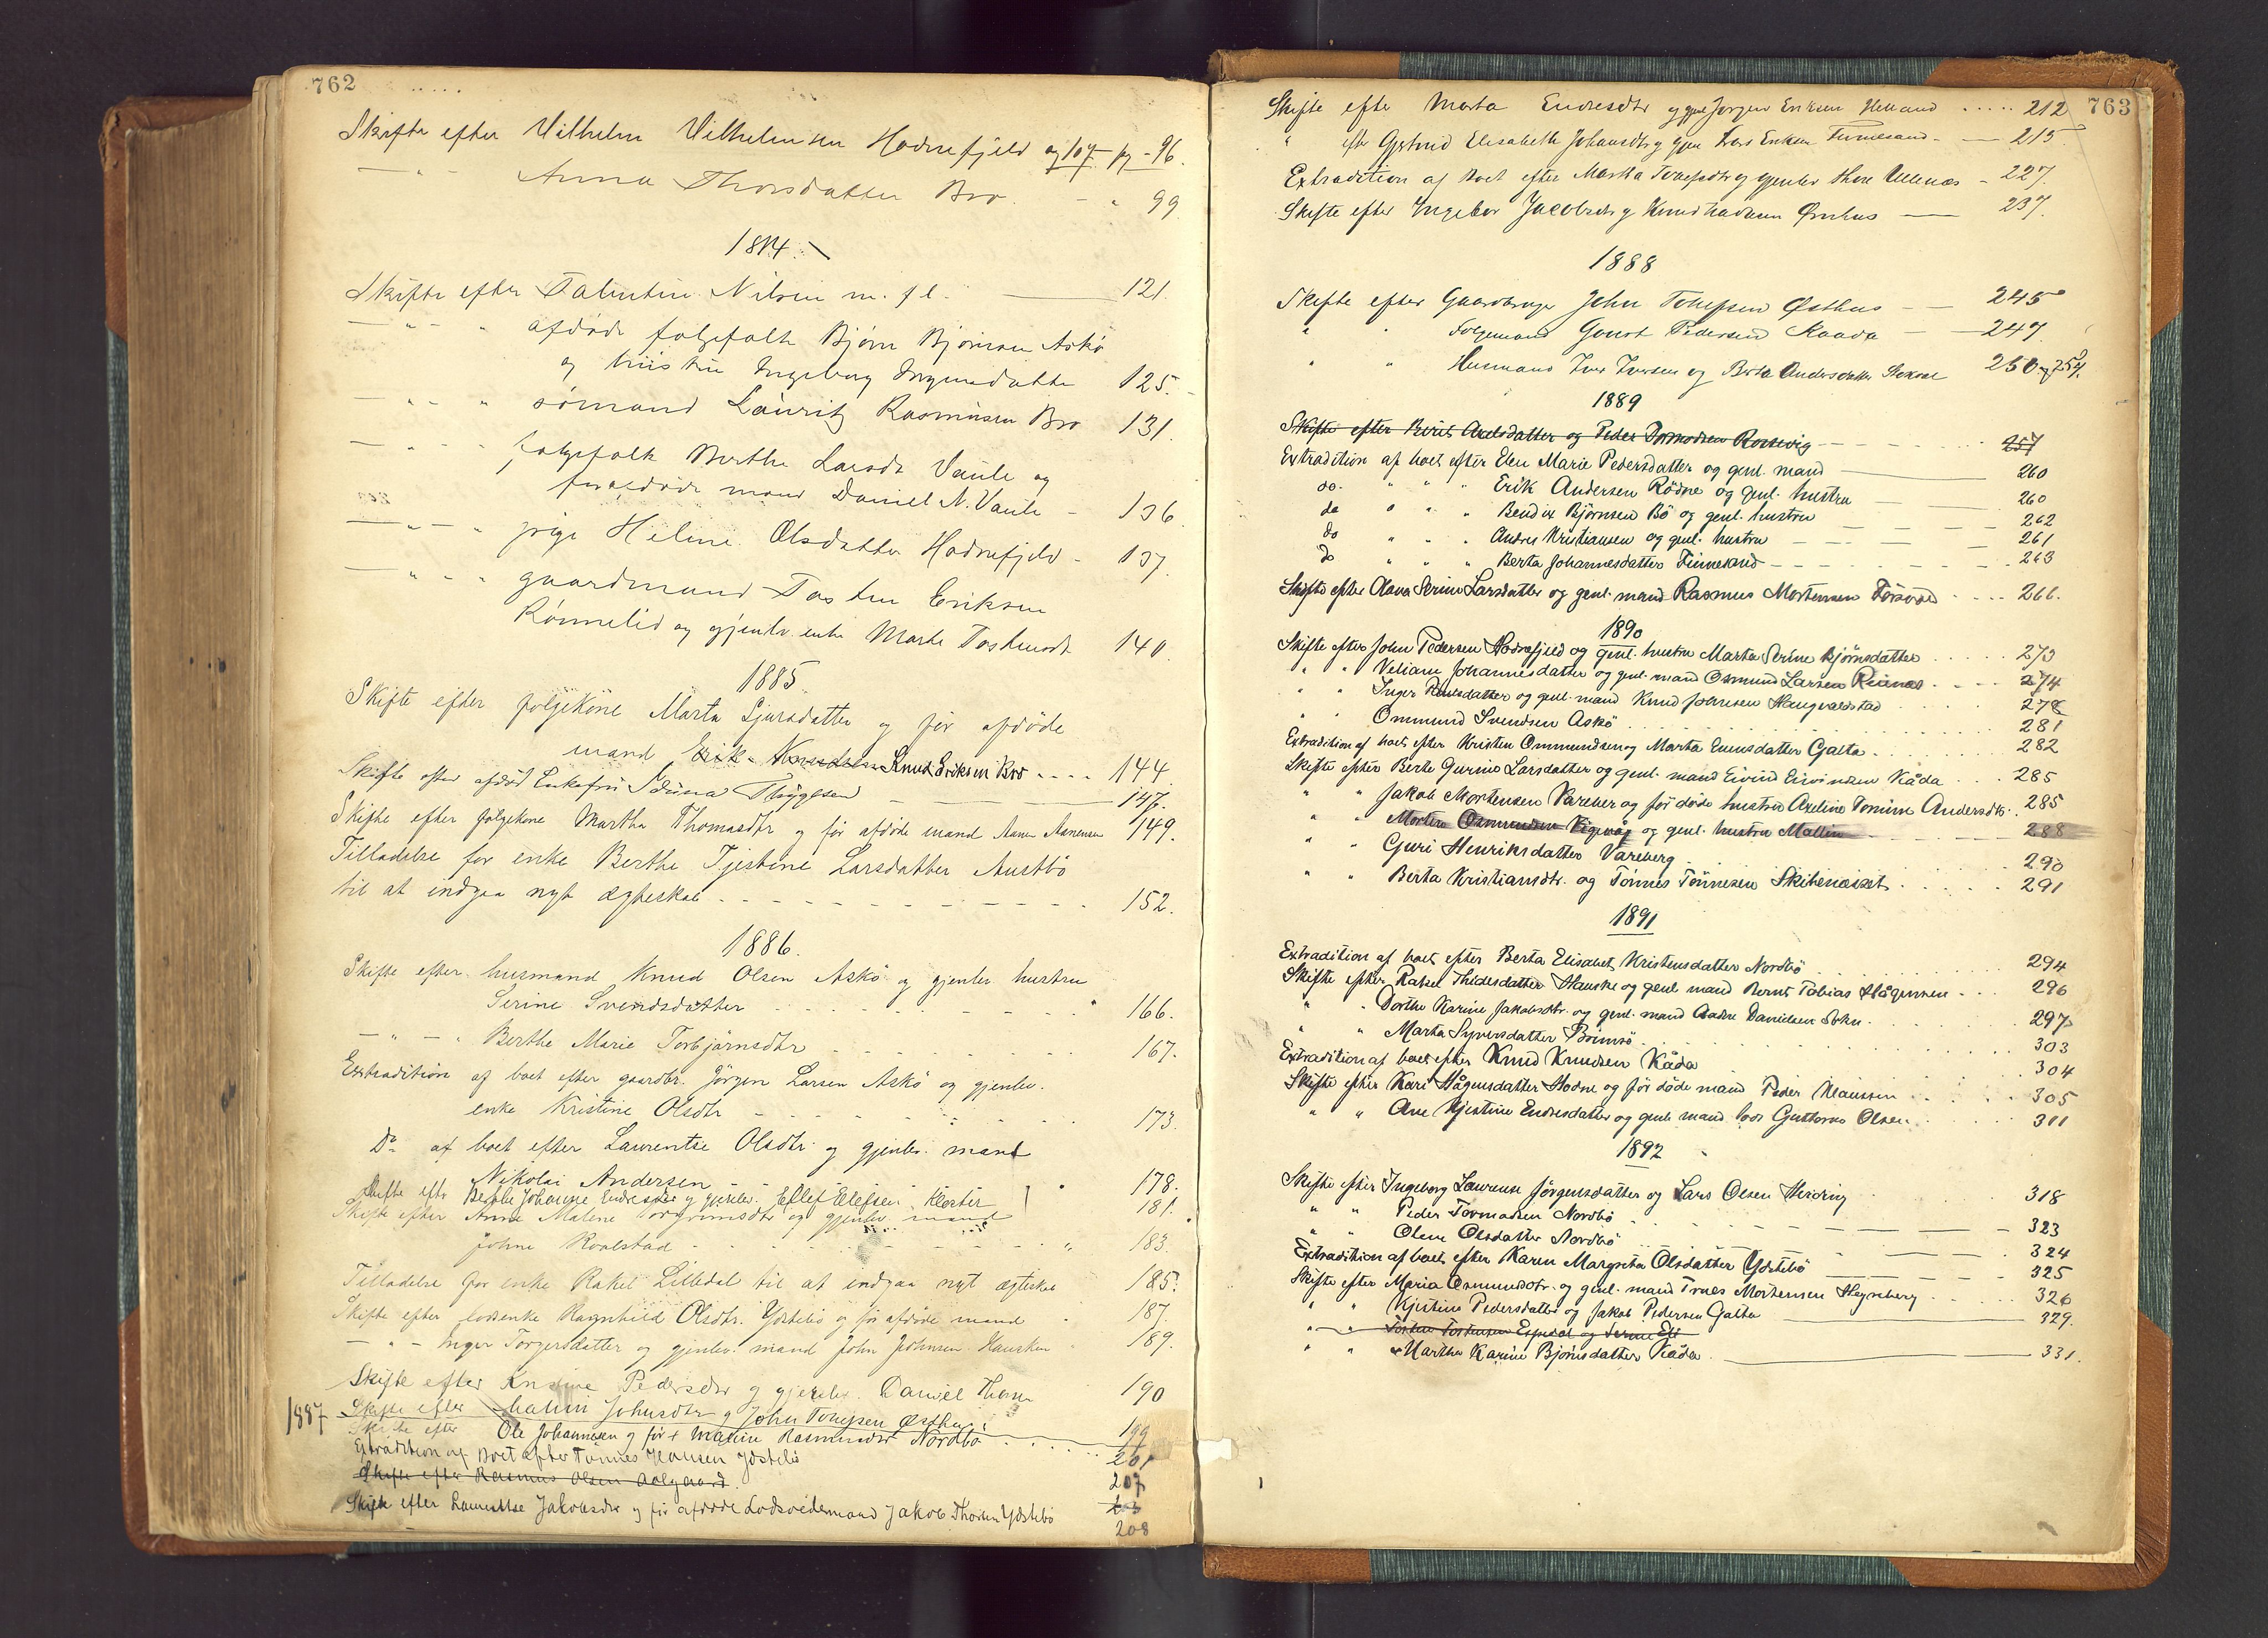 762
Skifte efter Vilhelm Vilhelmsen Hodnefjeld og 107 pg - 96.
— " - Anna Thorsdatter Bro. - " 99
1884.
Skifte efter Valentin Nilsen m. fl. 121.
— " - " afdøde folgefolk Bjørn Bjørnsen Askö
og hustru Ingeborg Ingmadatter 125.
— " - " sømand Lauritz Rasmusen Bro 131.
— " - " folgefolk Berthe Larsdr Vaule og
foraldøde mand Daniel N. Vaule - 136
— " - " pige Heline Olsdatter Hodnefjeld - 137.
— " - " gaardmand Tosten Eriksen
Rönnelid og gjenlv. enke Marte Tostensdt. 140.
1885.
Skifte efter folgekone Marta Sjursdatter og för afdöde
mand Erik Knudsen Knud Eriksen Bro - - - - 144
Skifte efter afdöd Enkefru Iduna Thygesen 147.
Skifte efter folgekone Martha Thomasdtr og för afdöde mand Aanen Aanensen 149.
Tilladelse for enke Berthe Tjestine Larsdatter Austbö
til at indgaa nyt ægteskab - - - - - - 152.
1886.
Skifte efter husmand Knud Olsen Askö og gjenlev hustru
Serine Svendsdatter - - - - " 166.
— " - " Berthe Marie Torbjørnsdtr - - - - - 167.
Extradition af boet efter gaardbr. Jörgen Larsen Askö og gjenlev.
enke Kristine Olsdtr - - - - 173.
Do af boet efter Laurentse Olsdtr og gjenlev. mand
Nikolai Andersen - - - - 178.
Skifte eftr Berthe Johanne Endresdtr og gjenlev. Ellef Ellefsen Kloster 181.
Skifte efter Anne Malene Torgrimsdtr og gjenlev mand
Johne Roalstad - - - - - - " 183.
Tilladelse for enke Rakel Lilledal til at indgaa nyt ægteskab 185.
Skifte efter losenke Ragnhild Olsdtr. Ydstebö og för afdöde mand 187.
— " - Inger Torgersdatter og gjenlev. mand John Johnsen Hausken 189.
Skifte efter Kristine Pedersdtr og gjenlev. Daniel Thorsen 190
1887 Skifte efter Malini Johnsdtr og John Tollefsen Østhus 199
Skifte efter Ole Johannesen og før + Malene Rasmusdtr Nordbö 201
Extradition af Boet efter Tönnes Hansen Ydstebö 207
Skifte efter Rasmus Olsen Aalgaard.
Skifte efter Laurentse Jakobsdtr og før afdøde Lodsoldermand Jakob Thorsen Ydstebö 208
763
Skifte efter Marta Endresdtr og gjenl Jørgen Eriksen Helland ..... 212
" eftr Gjertrud Elisabeth Johansdtr og gjen Lars Eriksen Finnesand - — 215
Extradition af Boet efter Martha Tollefsdtr og gjenlev Thore Ullenæs - 227.
Skifte efter Ingebor Jacobsdtr og Knud Halvorsen Ørnhus — 237.
1888
Skifte efter Gaardbruger John Tollefsen Østhus — 245
" " Folgemand Gouot Pedersen Raada — 247
" " Husmand Iver Iversen og Berte Andersdatter Stokdal 250 og 254.
1889
Skifte efter Berit Axelsdatter og Peder Tormodsen Rossevig 257
Extradition af boet efter Elen Marie Pedersdatter og genl. mand 260
do. " " " Erik Andersen Rödne og genl. hustru 260
do " " " Bendix Björnsen Bö og genl. hustru 262
do " " " Andres Kristiansen og genl. hustru 261
do " " " Berta Johannesdatter Finnesand 263
Skifte efter Olava Serine Larsdatter og genl. mand Rasmus Mortensen Førsvoll .... 266.
1890
Skifte efter John Pedersen Hodnefjeld og genl. hustru Marta Serine Bjørnsdatter ..... 273
" " Veliane Johannesdatter og genl. mand Osmund Larsen Reianes .... 274
" " Inger Poulsdatter og genl. mand Knud Johnsen Haugvaldstad 278
" " Ommund Svendsen Askö 281
Extradition af boet efter Kristen Ommundsen og Marta Enersdatter Galta 282
Skifte efter Berte Gurine Larsdatter og genl. mand Eivind Eivindsen Kåda ... 285
" " Jakob Mortensen Vareberg og för döde hustru Axeline Tomine Andersdtr. 285
" " Morten Osmundsen Vigevåg og genl. hustru Mallin 288
" " Guri Henriksdatter Vareberg 290
" " Berta Kristiansdtr. og Tönnes Tönnesen Skibenæset 291
1891
Extradition af boet efter Berta Elisabet Kristensdatter Nordbö 294
Skifte efter Rakel Thidesdatter Hauske og genl mand Bernt Tobias Hågensen ... 296
" " Dorthe Karine Jakobsdtr. og genl. mand Aadne Danielsen Sokn 297
" " Marta Syversdatter Brimsö 303
Extradition af boet efter Knud Knudsen Kåda 304
Skifte efter Kari Hågensdatter Hodne og för döde mand Peder Klausen 305
" " Ane Kjestine Endresdatter og genl mand lods Guttorm Olsen 311
1892
Skifte efter Ingeborg Laurense Jörgensdatter og Lars Olsen Meidring 318
" " Peder Tormodsen Nordbö 323
" " Olene Olsdatter Nordbö 324
Extradition af boet efter Karen Margreta Olsdatter Ydstebö 325
Skifte efter Maria Osmundsdtr. og genl. mand Truls Mortensen Hegreberg 326
" " Kjistine Pedersdatter og Jakob Pedersen Galta 329.
" " Tosten Tostensen Espedal og Serine Eli
" " Marthe Karine Björnsdatter Kåda 331.